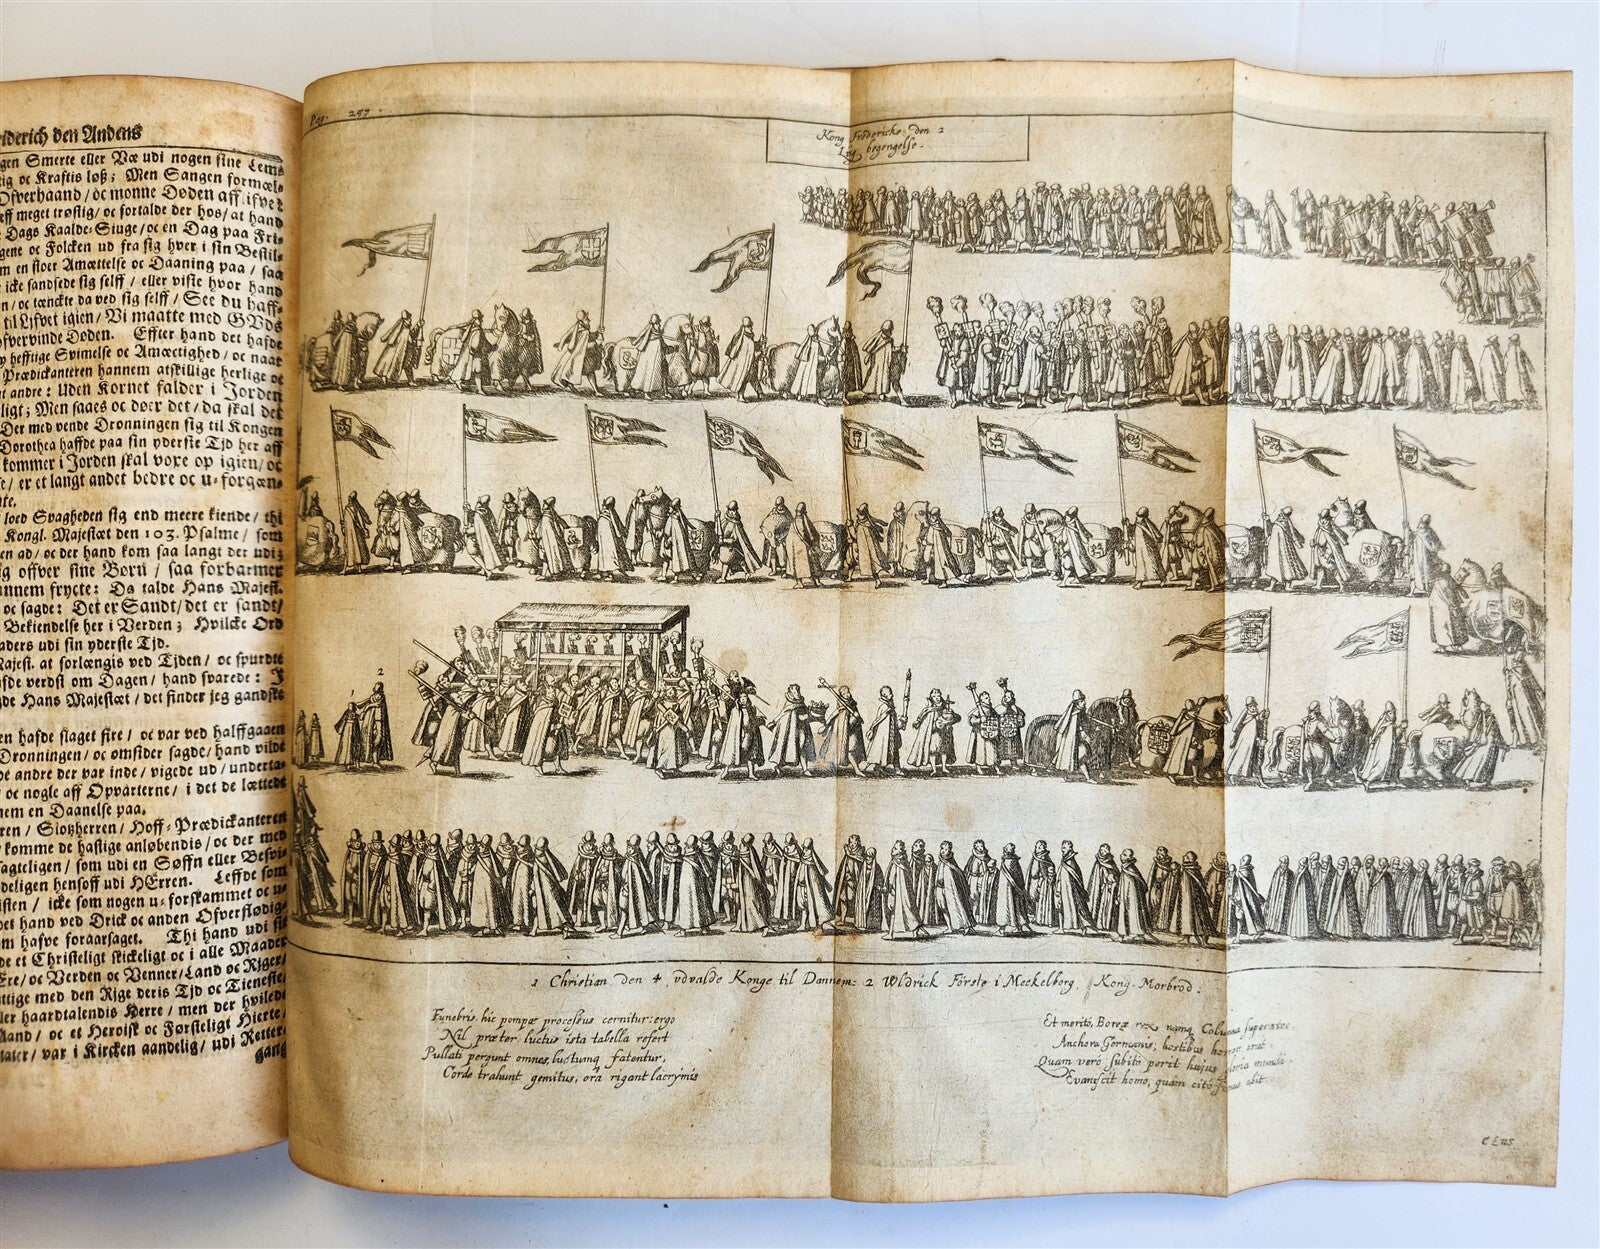 riderich den Andens
gen Smerte eller Væ udi nogen sine Lems
tig oc Kraftis løß; Men Sangen formæl-
Ofverhaand / oc monne Døden aff
eff meget trøstig / oc fortalde der hos / at hand
Dags Kaalde-Siuge / oc en Dag paa Fri-
gene oc Folcken ud fra sig hver i sin Bestil-
m en stoer Amættelse oc Daaning paa / saa
icke sandsede sig selff / eller viste hvor hand
n / oc tænckte da ved sig selff / See du haff-
til Lifvet igien / Vi maatte med GUds
ofvervinde Døden. Effter hand det hafde
hefftige Svimelse oc Amæctighed / oc naar
Prædickanteren hannem atskillige herlige oc
t andre: Uden Kornet falder i Jorden
ligt; Men saaes oc døer det / da skal det
Der med vende Dronningen sig til Kongen
Dorothea haffde paa sin yderste Tjd her aff
kommer i Jorden skal voxe op igien / oc
e / er et langt andet bedre oc u-forgæn-
te.
loed Svagheden sig end meere kiende / thi
Kongl. Majestæt den 103. Psalme / som
en ad / oc der hand kom saa langt der udi;
ig offver sine Børn / saa forbarmer
annem frycte: Da talde Hans Majest.
oc sagde: Det er Sandt / det er sandt /
Bekiendelse her i Verden; Hvilcke Ord
aders udi sin yderste Tjd.
Majest. at forlængis ved Tjden / oc spurdte
fde verdst om Dagen / hand svarede: I
de Hans Majestæt / det finder jeg gandske
en hafde slaget fire / oc var ved halffgaaen
Dronningen / oc omsider sagde / hand vilde
de andre der var inde / vigede ud / underta-
oc nogle aff Opvarterne / i det de lættede
nem en Daanelse paa.
ren / Slotzherren / Hoff-Prædickanteren
komme de hastige anløbendis / oc der med
sagteligen / som udi en Søffn eller Besvi-
deligen hensoff udi HErren. Leffde som
isten / icke som nogen u-forskammet oc u-
et hand ved Drick oc anden Ofverflødig-
m hafve foraarsaget. Thi hand udi sit
de et Christeligt skickeligt oc i alle Maader
Ere / oc Verden oc Venner / Land oc Rjger /
ttige med den Rjge deris Tjd oc Tieneste,
ller haardtalendis Herre / men der hvilede
Aand / oc et Heroisk oc Førsteligt Hierte,
tater / var i Kircken aandelig / udi Retter-
gang
Pag. 297.
Kong Frederichs den 2
Lug begengelse.
1 2
1 Christian den 4 udvalde Konge til Dannem: 2 Wldrick Förste i Meckelborg, Kong. Morbrod.
Funebris hic pompæ processus cernitur: ergo
Nil præter luctus ista tabella refert
Pullati pergunt omnes, luctumq fatentur,
Corde trahunt gemitus, ora rigant lacrymis
Et merito, Boreæ rex namq Columna superstes
Anchora Germanis; hostibus horror erat.
Quam vero subito perit hujus gloria mundi
Evanescit homo, quam cito fumus abit.